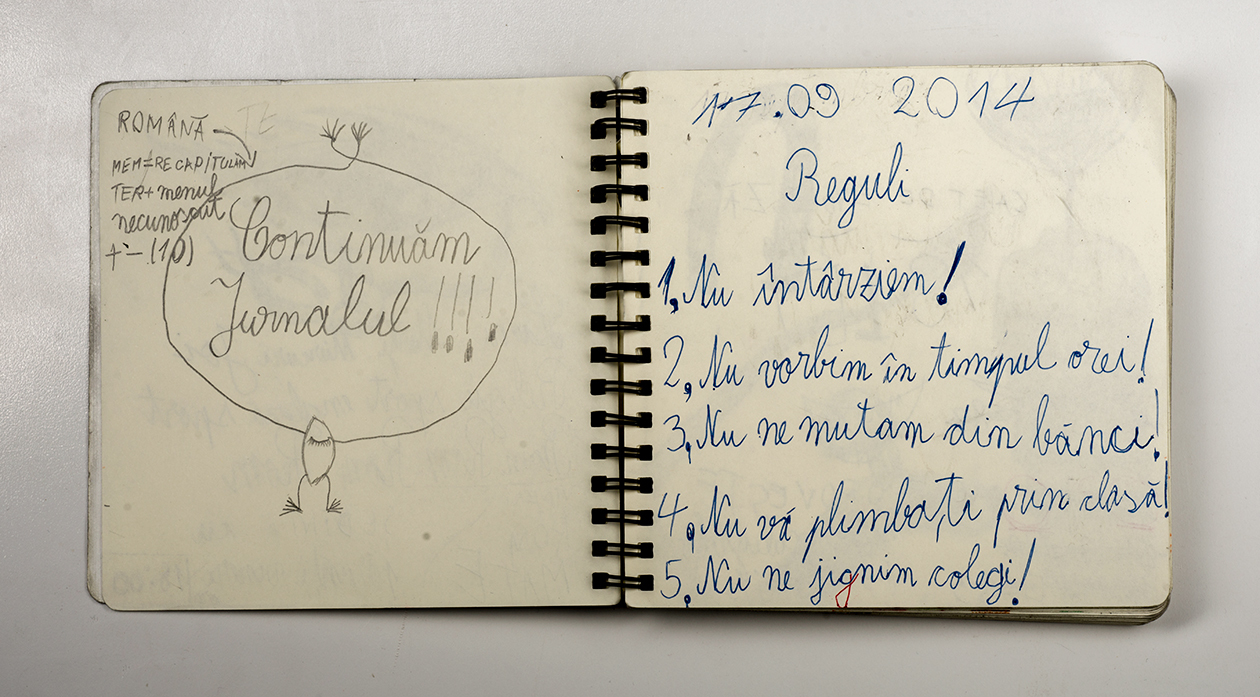 ROMÂNĂ
TE
MEM=RECAPITULĂM
TER+menul
necunoscut
+- (10)
Continuăm
Jurnalul !!!!
17.09 2014
Reguli
1, Nu întârziem!
2, Nu vorbim în timpul orei!
3, Nu ne mutam din bănci!
4, Nu vă plimbați prin clasă!
5, Nu ne jignim colegi!